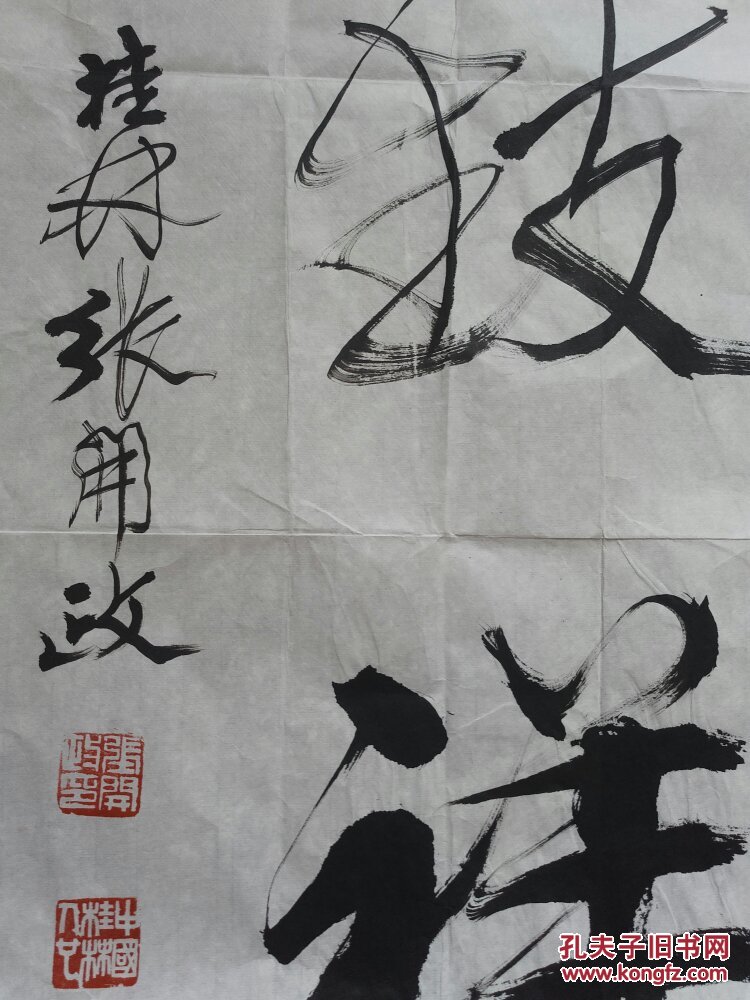 致祥
桂林张開政
張開政印
中國桂林人
孔夫子旧书网
www.kongfz.com